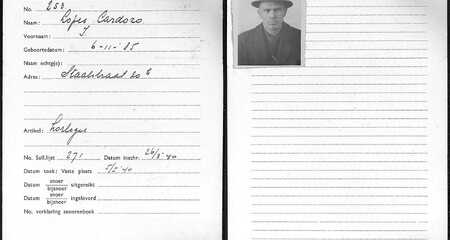 No. 253
Naam: Lopes Cardozo.
Voornaam: J.
Geboortedatum: 6-11-'85
Naam echtg(:
Adres: Staalstraat 20
Artikel: horloges
No. Soll.lijst 271 Datum inschr. 26/3 '40
Datum toek: Vaste plaats 5/5 '40
Datum snoer
bijsnoer uitgereikt
Datum snoer
bijsnoer ingeleverd
No. verklaring snoerenboek